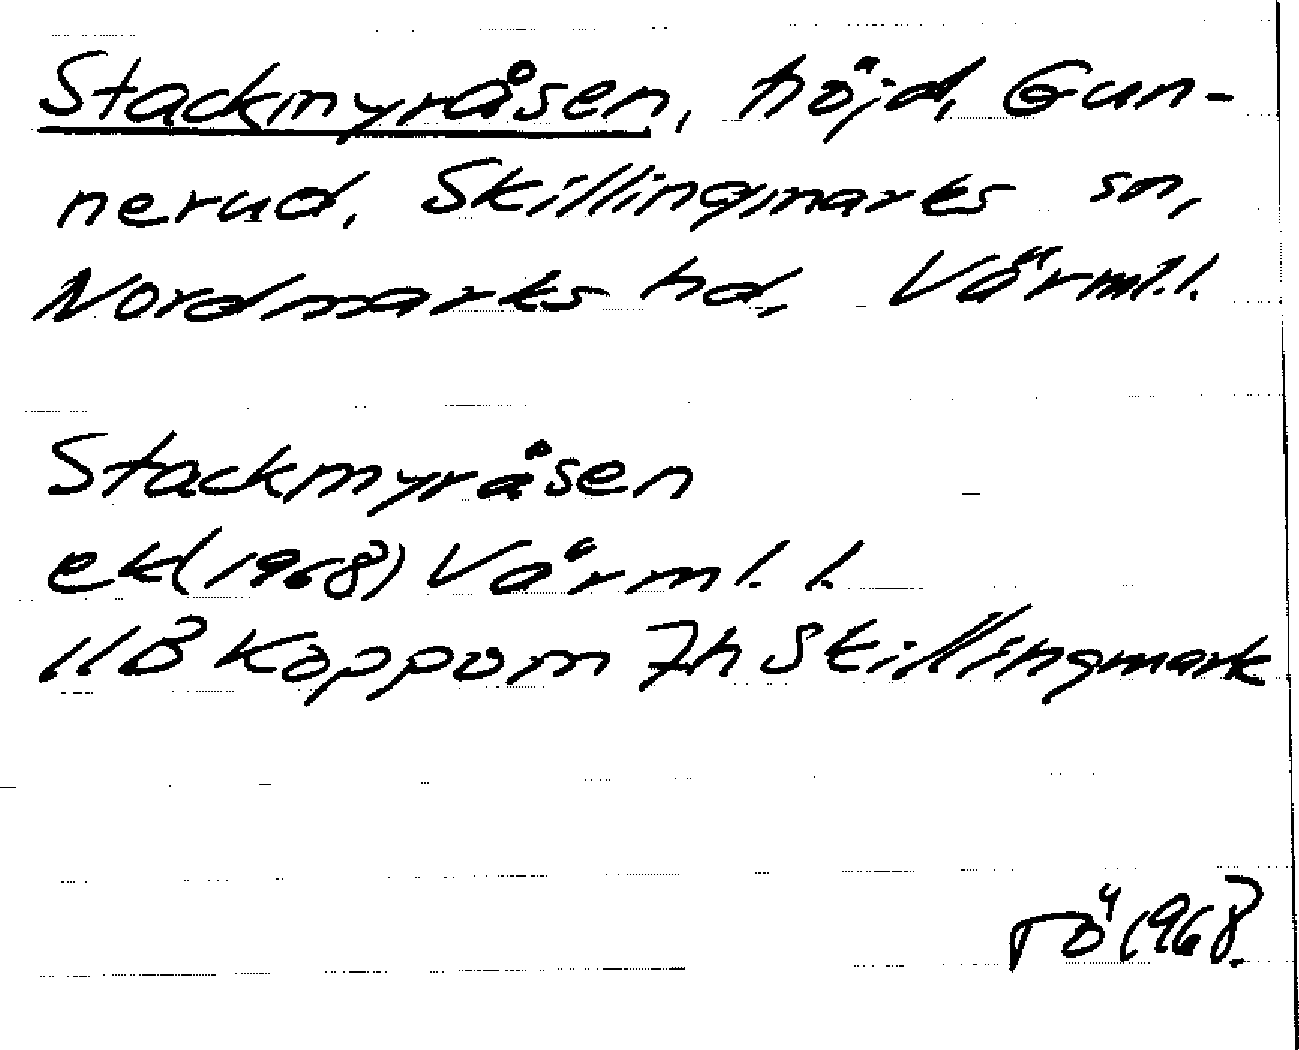 Stackmyråsen, höjd, Gun-
nerud, Skillingmarks sn,
Nordmarks hd, Värml.l.
Stackmyråsen
ekl(1968) Värml. l.
11B Koppom 7h Skillingmark
TÖ 1968.